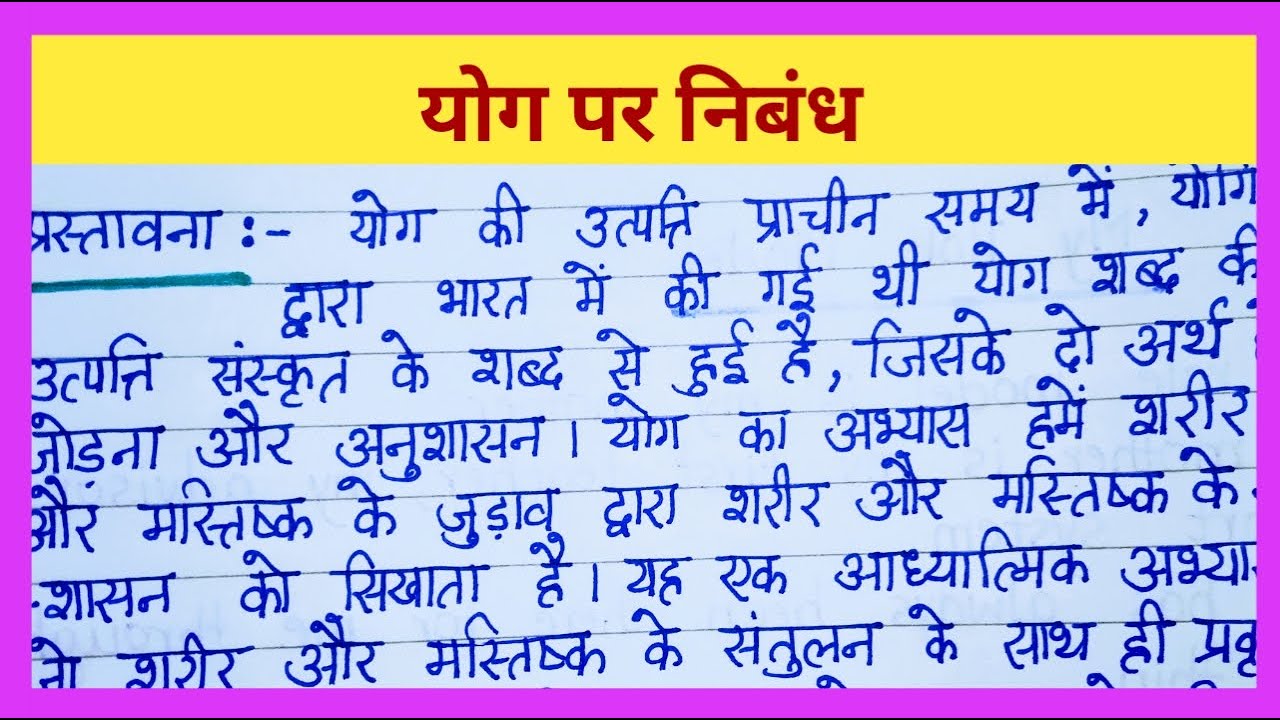 योग पर निबंध
प्रस्तावना :- योग की उत्पत्ति प्राचीन समय में, योगि
द्वारा भारत में की गई थी योग शब्द की
उत्पत्ति संस्कृत के शब्द से हुई है, जिसके दो अर्थ
जोड़ना और अनुशासन । योग का अभ्यास हमें शरीर
और मस्तिष्क के जुड़ाव द्वारा शरीर और मस्तिष्क के
-शासन को सिखाता है । यह एक आध्यात्मिक अभ्या
शरीर और मस्तिष्क के संतुलन के साथ ही प्रकृ